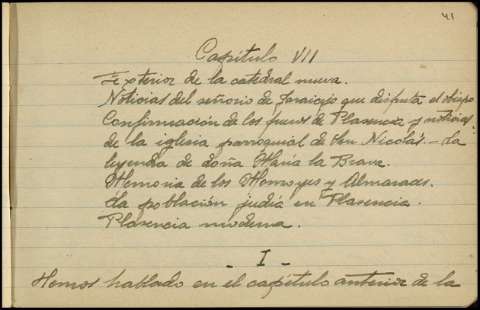 41
Capítulo VII
Exterior de la catedral nueva.
Noticias del señorío de Jaraicejo que disfruta el obispo
Confirmación de los fueros de Plasencia y noticias
de la iglesia parroquial de San Nicolás - La
leyenda de doña María la Brava.
Memoria de los Monroyes y Almaraces.
La población judía en Plasencia.
Plasencia moderna.
- I -
Hemos hablado en el capítulo anterior de la